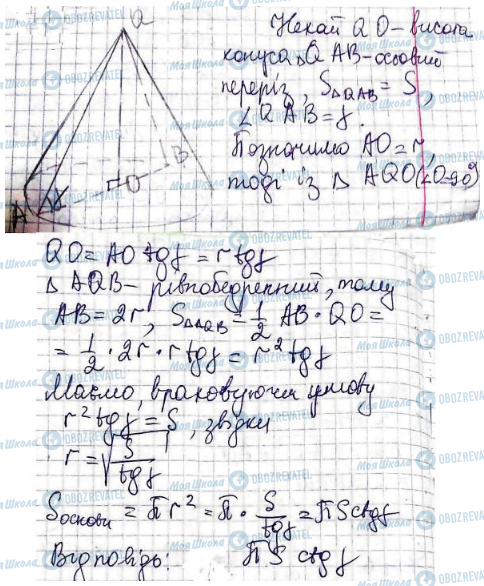 Q
A
B
O
γ
Нехай QO - висота
конуса △QAB - осьовий
переріз, S△QAB = S,
∠QAB = γ.
Позначимо AO = r,
тоді із △ AQO (∠O=90°)
QO = AO tgγ = r tgγ
△ AQB - рівнобедренний, тому
AB = 2r, S△AQB = 1/2 AB · QO =
= 1/2 · 2r · r tgγ = r² tgγ
Маємо, враховуючи умову
r² tgγ = S, звідки
r = √(S/tgγ)
Sоснови = πr² = π · S/tgγ = πS ctgγ
Відповідь: πS ctgγ